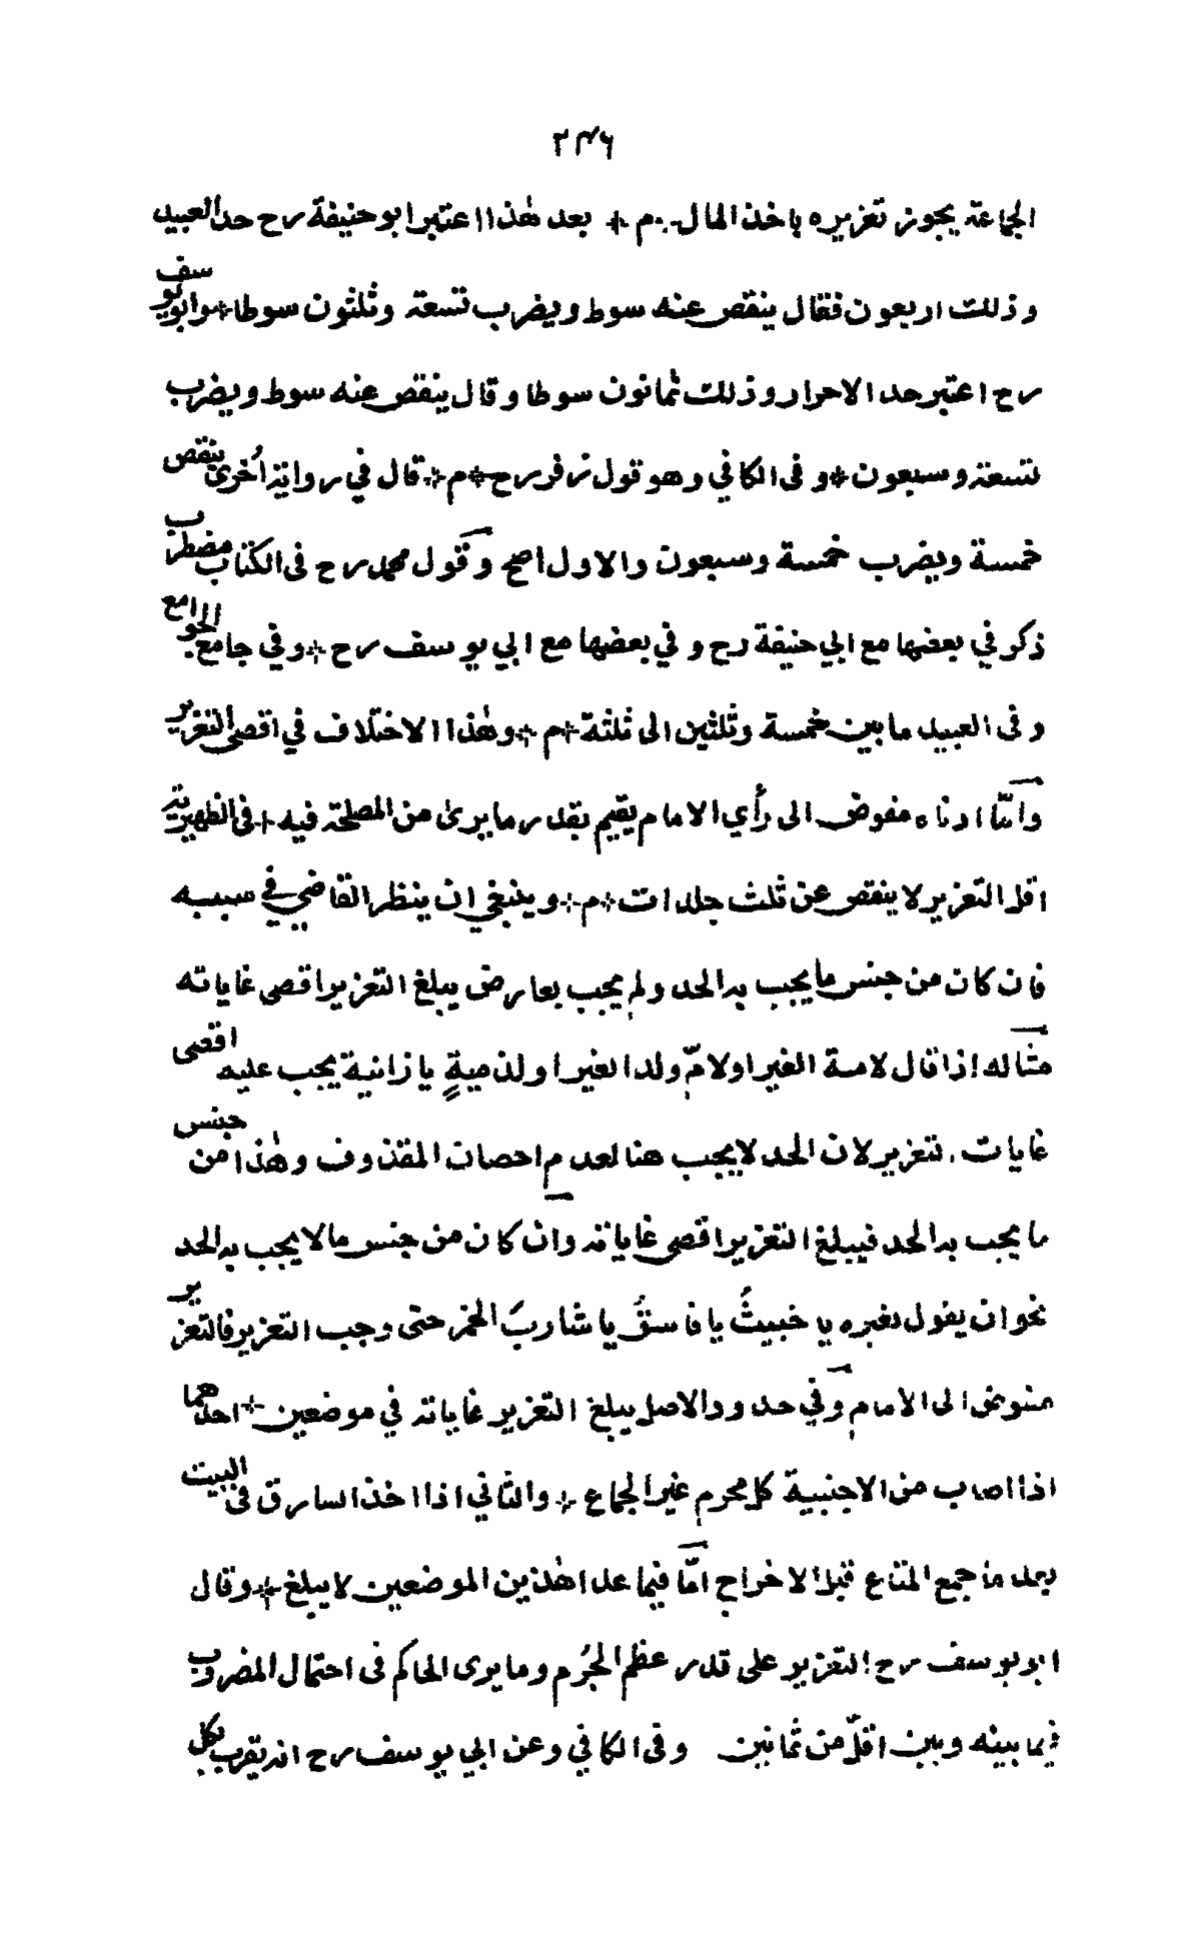 ٢٤٦
الجماعة يجوز تعزيره باخذ المال ٠ م * بعد هٰذا اعتبر ابو حنيفة رح حد العبيد
وذلك اربعون فقال ينقص عنه سوط ويضرب تسعة وثلثون سوطا * وابو يوسف
رح اعتبر حد الاحرار وذلك ثمانون سوطا وقال ينقص عنه سوط ويضرب
تسعة وسبعون * و فى الكافي وهو قول زفر رح * م * قال في رواية اُخرىٰ ينقص
خمسة ويضرب خمسة وسبعون والاول اصح وقول محمد رح فى الكتاب مضطرب
ذكر في بعضها مع ابي حنيفة رح و في بعضها مع ابي يوسف رح * وفي جامع الجوامع
و فى العبيد ما بين خمسة وثلٰثين الى ثلٰثة * م * وهٰذا الاختلاف في اقصى التعزير
وامّا ادناه مفوض الى رأي الامام يقيم بقدر ما يرىٰ من المصلحة فيه * فى الظهيرية
اقل التعزير لا ينقص عن ثلث جلدات * م * وينبغي ان ينظر القاضي في سببه
فان كان من جنس ما يجب به الحد ولم يجب بعارض يبلغ التعزير اقصى غاياته
مثاله اذا قال لامة الغير او لامّ ولد الغير او لذميةٍ يا زانية يجب عليه اقصى
غايات التعزير لان الحد لا يجب هنا لعدم احصان المقذوف وهٰذا من جنس
ما يجب به الحد فيبلغ التعزير اقصى غاياته وان كان من جنس ما لا يجب به الحد
نحو ان يقول لغيره يا خبيثُ يا فاسقُ يا شاربَ الخمر حتى وجب التعزير فالتعزير
مفوض الى الامام وفي حدود الاصل يبلغ التعزير غاياته في موضعين * احدهما
اذا اصاب من الاجنبية كل محرم غير الجماع * والثاني اذا اخذ السارق فى البيت
بعد ما جمع المتاع قبل الاخراج امّا فيما عدا هٰذين الموضعين لا يبلغ * وقال
ابو يوسف رح التعزير على قدر عظم الجُرم وما يرى الحاكم فى احتمال المضروب
فيما بينه وبين اقلّ من ثمانين وفى الكافي وعن ابي يوسف رح انه يقرب بكل